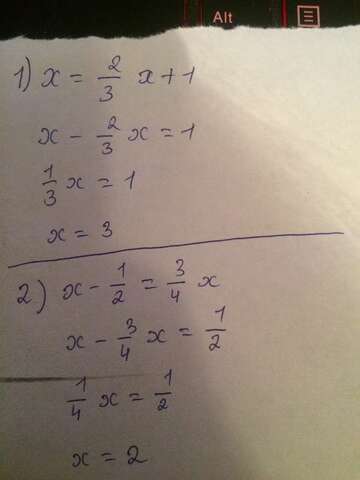 Alt
1) x = 2/3 x + 1
x - 2/3 x = 1
1/3 x = 1
x = 3
2) x - 1/2 = 3/4 x
x - 3/4 x = 1/2
1/4 x = 1/2
x = 2